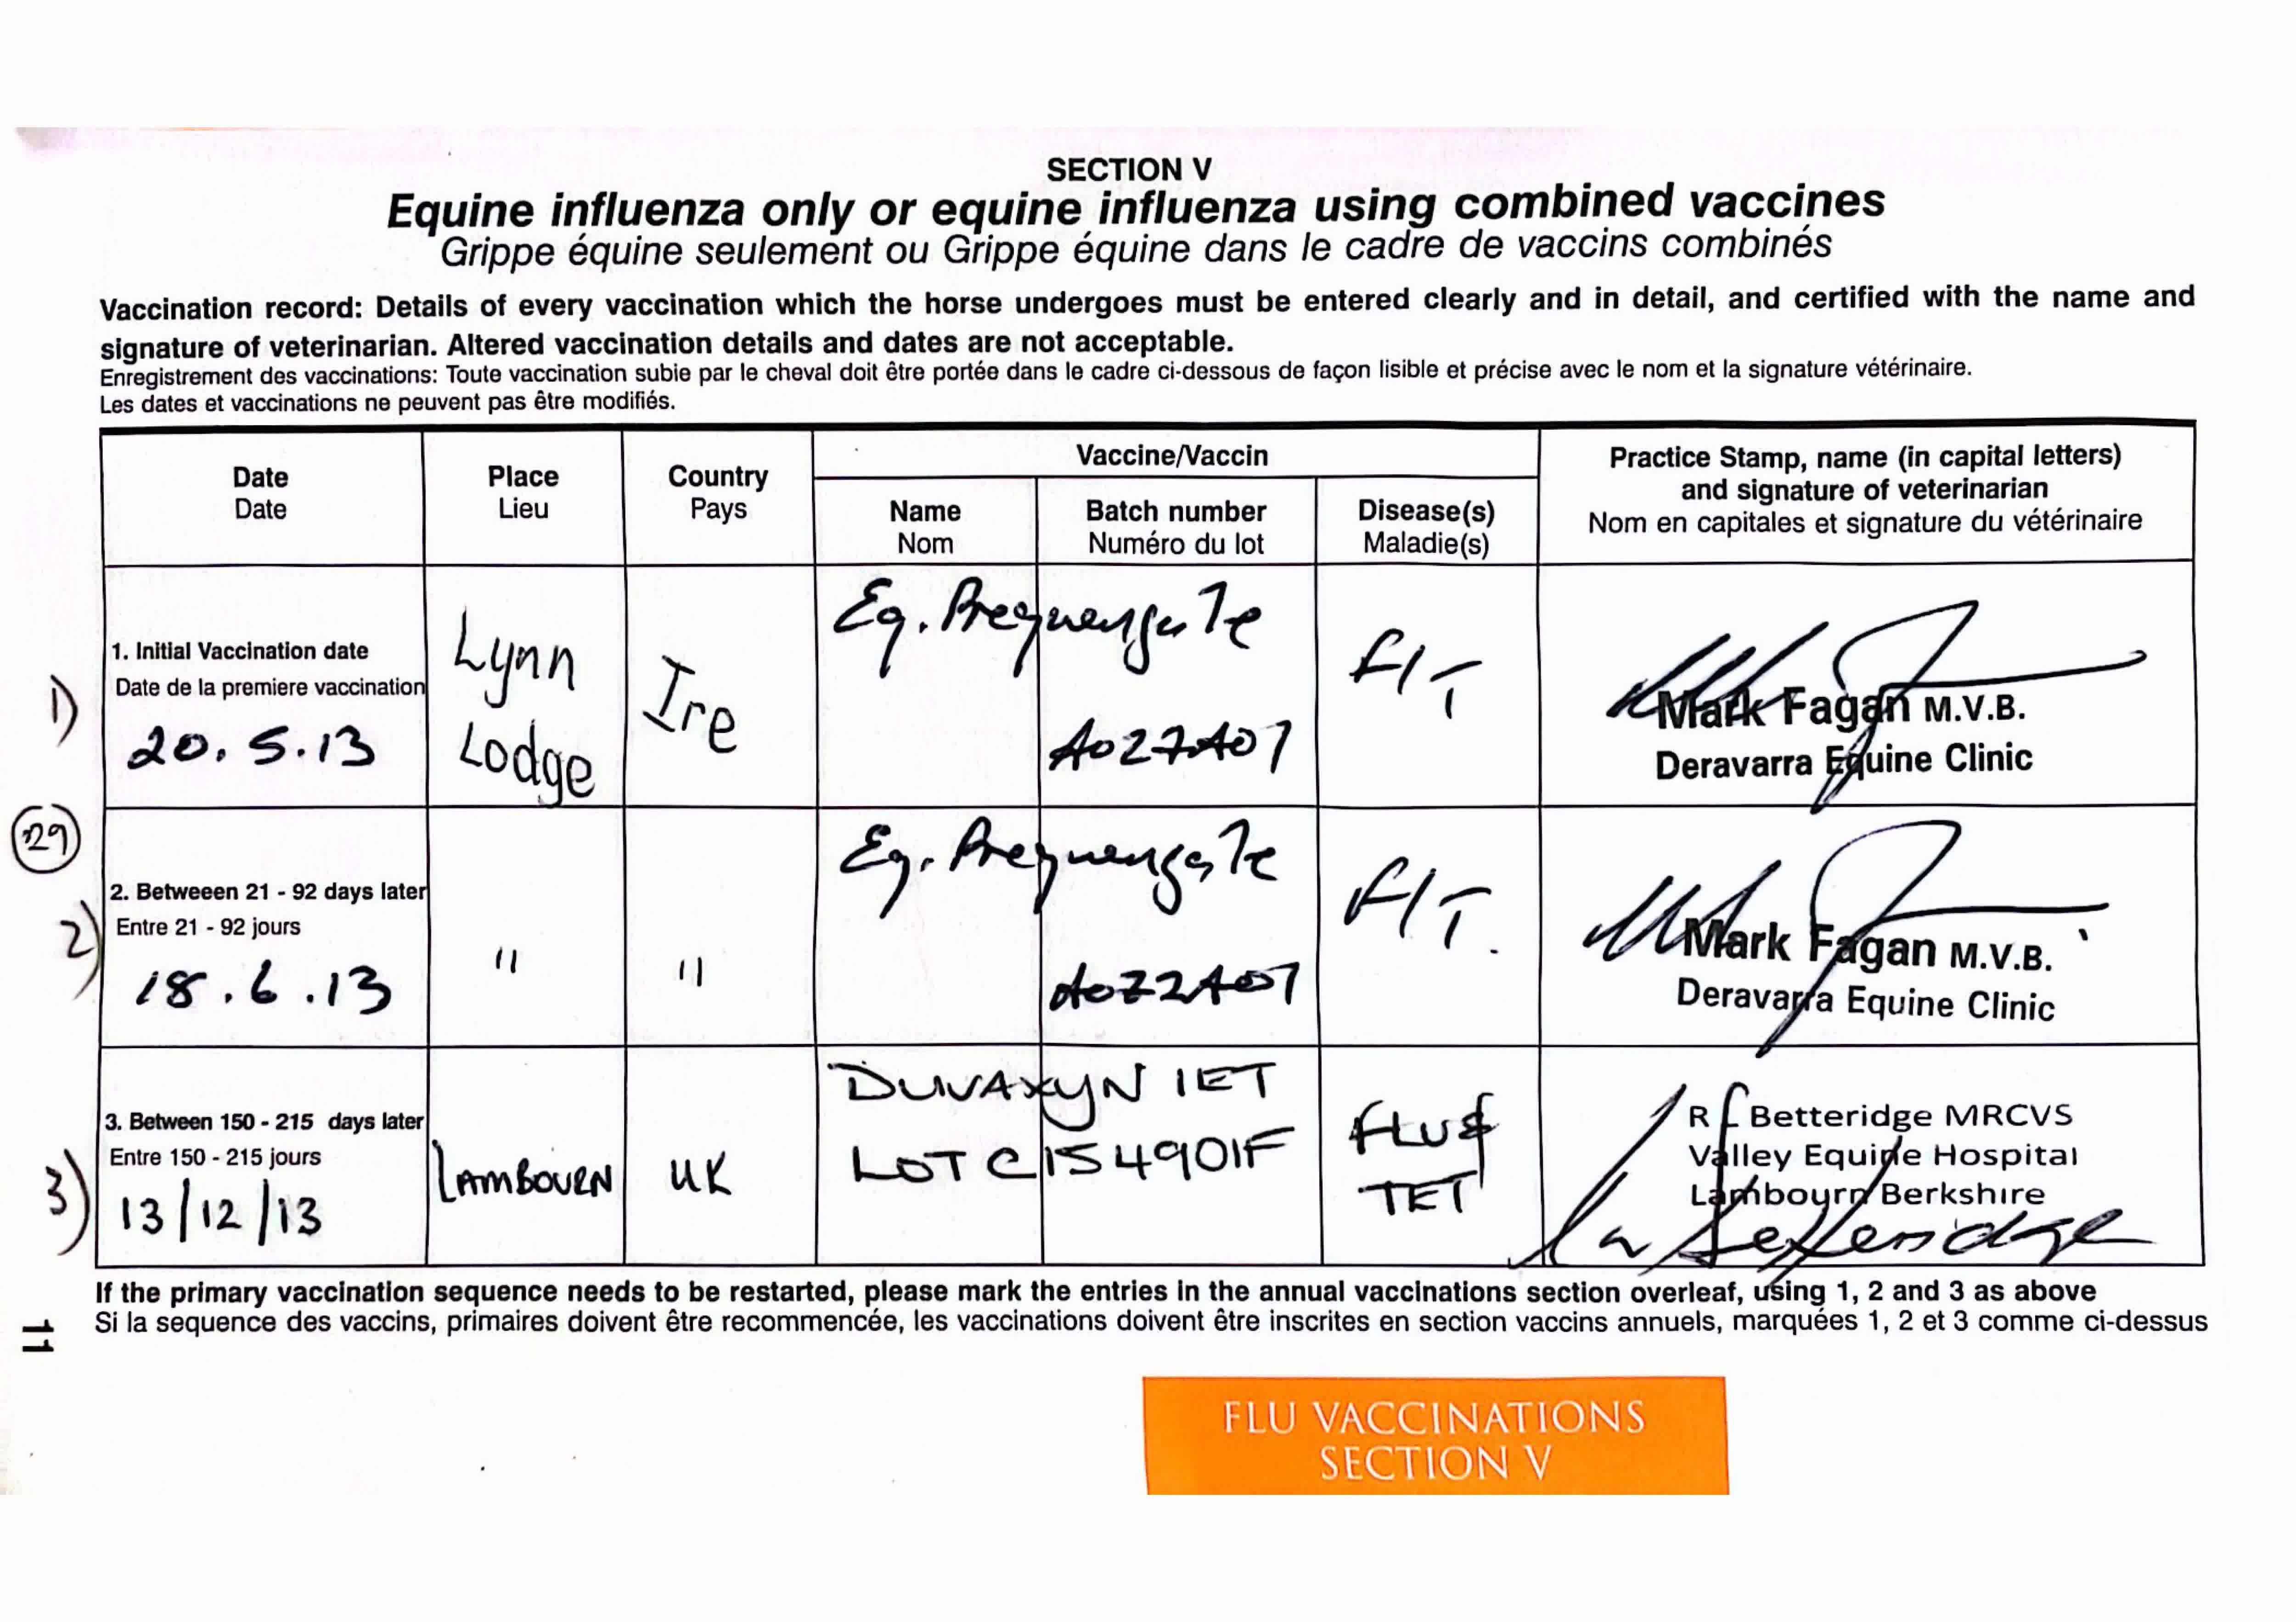 SECTION V
Equine influenza only or equine influenza using combined vaccines
Grippe équine seulement ou Grippe équine dans le cadre de vaccins combinés
Vaccination record: Details of every vaccination which the horse undergoes must be entered clearly and in detail, and certified with the name and
signature of veterinarian. Altered vaccination details and dates are not acceptable.
Enregistrement des vaccinations: Toute vaccination subie par le cheval doit être portée dans le cadre ci-dessous de façon lisible et précise avec le nom et la signature vétérinaire.
Les dates et vaccinations ne peuvent pas être modifiés.
Date
Date
Place
Lieu
Country
Pays
Vaccine/Vaccin
Name
Nom
Batch number
Numéro du lot
Disease(s)
Maladie(s)
Practice Stamp, name (in capital letters)
and signature of veterinarian
Nom en capitales et signature du vétérinaire
1)
1. Initial Vaccination date
Date de la premiere vaccination
20.5.13
Lynn
Lodge
Ire
Eq.
A027A07
F/T
Mark Fagan M.V.B.
Deravarra Equine Clinic
29
2)
2. Betweeen 21 - 92 days later
Entre 21 - 92 jours
18.6.13
"
"
Eq.
F/T.
Mark Fagan M.V.B.
Deravarra Equine Clinic
3)
3. Between 150 - 215 days later
Entre 150 - 215 jours
13/12/13
LAMBOURN
UK
DUVAXYN IET
LOT C154901F
FLU &
TET
R F Betteridge MRCVS
Valley Equine Hospital
Lambourn Berkshire
If the primary vaccination sequence needs to be restarted, please mark the entries in the annual vaccinations section overleaf, using 1, 2 and 3 as above
Si la sequence des vaccins, primaires doivent être recommencée, les vaccinations doivent être inscrites en section vaccins annuels, marquées 1, 2 et 3 comme ci-dessus
11
FLU VACCINATIONS
SECTION V